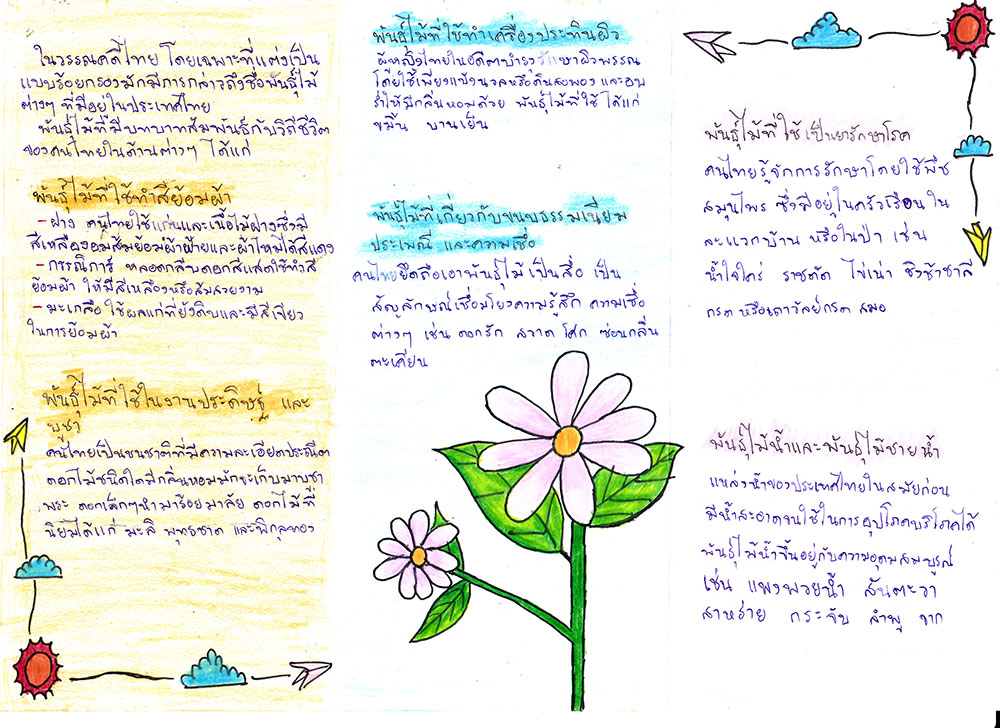 ในวรรณคดีไทย โดยเฉพาะที่แต่งเป็น
แบบร้อยกรองมักมีการกล่าวถึงชื่อพันธุ์ไม้
ต่างๆ ที่มีอยู่ในประเทศไทย
พันธุ์ไม้ที่มีบทบาทสัมพันธ์กับวิถีชีวิต
ของคนไทยในด้านต่างๆ ได้แก่
พันธุ์ไม้ที่ใช้ทำสีย้อมผ้า
- ฝาง คนไทยใช้แก่นและเนื้อไม้ฝางซึ่งมี
สีเหลืองอมส้มย้อมผ้าฝ้ายและผ้าไหมได้สีแดง
- กรรณิการ์ หลอดกลีบดอกสีแสดใช้ทำสี
ย้อมผ้า ให้มีสีเหลืองหรือส้มสวยงาม
- มะเกลือ ใช้ผลแก่ที่ยังดิบและมีสีเขียว
ในการย้อมผ้า
พันธุ์ไม้ที่ใช้ในงานประดิษฐ์ และ
บูชา
คนไทยเป็นชนชาติที่มีความละเอียดประณีต
ดอกไม้ชนิดใดมีกลิ่นหอมมักจะเก็บมาบูชา
พระ ดอกเล็กๆนำมาร้อยมาลัย ดอกไม้ที่
นิยมได้แก่ มะลิ พุทธชาด และพิกุลทอง
พันธุ์ไม้ที่ใช้ทำเครื่องประทินผิว
ผู้หญิงไทยในอดีตบำรุงรักษาผิวพรรณ
โดยใช้เพียงแป้งนวลหรือดินสอพอง และอบ
ร่ำให้มีกลิ่นหอมด้วย พันธุ์ไม้ที่ใช้ ได้แก่
ขมิ้น บานเย็น
พันธุ์ไม้ที่เกี่ยวกับขนบธรรมเนียม
ประเพณี และความเชื่อ
คนไทยยึดถือเอาพันธุ์ไม้ เป็นสื่อ เป็น
สัญลักษณ์เชื่อมโยงความรู้สึก ความเชื่อ
ต่างๆ เช่น ดอกรัก สวาด โศก ซ่อนกลิ่น
ตะเคียน
พันธุ์ไม้ที่ใช้เป็นยารักษาโรค
คนไทยรู้จักการรักษาโดยใช้พืช
สมุนไพร ซึ่งมีอยู่ในครัวเรือน ใน
ละแวกบ้าน หรือในป่า เช่น
น้ำใจใคร่ ราชดัด ไข่เน่า ชิงช้าชาลี
กรด หรือเถาวัลย์กรด สมอ
พันธุ์ไม้น้ำและพันธุ์ไม้ชายน้ำ
แหล่งน้ำของประเทศไทยในสมัยก่อน
มีน้ำสะอาดจนใช้ในการอุปโภคบริโภคได้
พันธุ์ไม้น้ำขึ้นอยู่กับความอุดมสมบูรณ์
เช่น แพงพวยน้ำ สันตะวา
สาหร่าย กระจับ ลำพู จาก